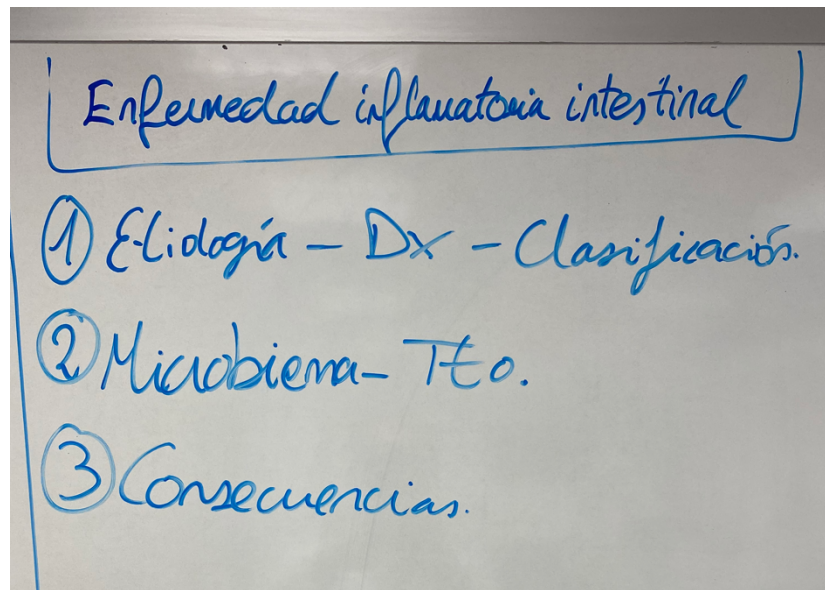 Enfermedad inflamatoria intestinal
① Etiología - Dx - Clasificación.
② Microbioma - Tto.
③ Consecuencias.